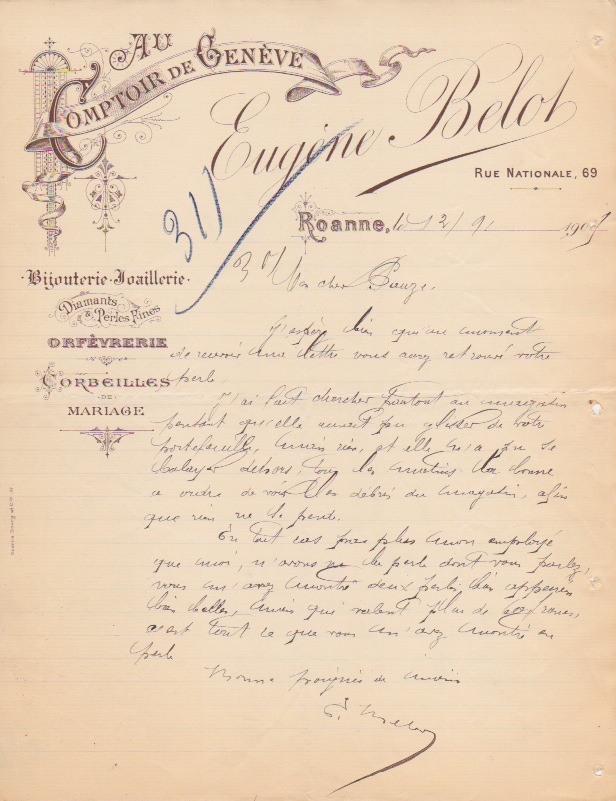 AU
COMPTOIR DE GENÈVE
Eugène Belot
RUE NATIONALE, 69
Roanne, le 12/91 190
311
Bijouterie-Joaillerie
Diamants
& Perles Fines
ORFÈVRERIE
CORBEILLES
DE
MARIAGE
Mon cher
J'espère bien qu'au moment
de recevoir ma lettre vous aurez retrouvé votre
perle.
J'ai fait chercher partout au magasin
pensant qu'elle aurait pu glisser de votre
portefeuille, mais rien, et elle n'a pu se
balayer dehors, tous les matins la bonne
a ordre de voir les débris du magasin, afin
que rien ne se perde.
En tout cas pas plus mon employé
que moi, n'avons vu la perle dont vous parlez,
vous m'avez montré deux perles bien
bien belles, mais qui valent plus de
c'est tout ce que vous m'avez montré en
perle
Bonne poignée de mains
E. Belot